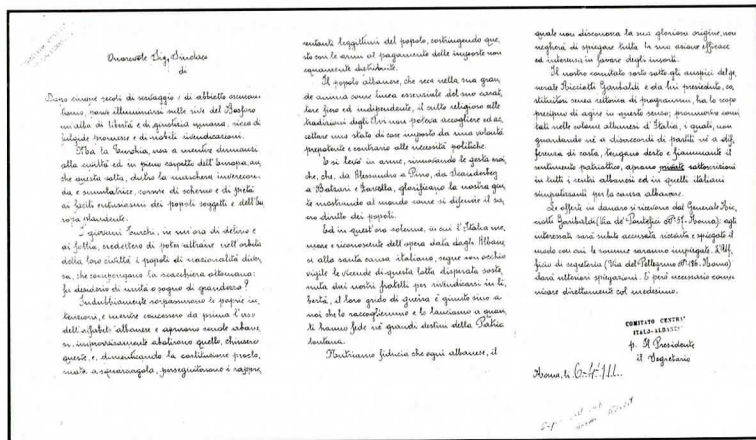 Onorevole Sig. Sindaco
di
Dopo cinque secoli di servaggio e di abbietto oscuran-
tismo, parve illuminarsi sulle rive del Bosforo
un'alba di libertà e di giustizia umana, ricca di
fulgide promesse e di nobili rivendicazioni.
Ma la Turchia, usa a mentire dinnanzi
alla civiltà ed in pieno cospetto dell'Europa, an,
che questa volta, dietro la maschera inverecon,
da e simulatrice, sorrise di scherno e di pietà
ai facili entusiasmi dei popoli soggetti e dell'Eu
ropa plaudente.
I giovani Turchi, in un'ora di delirio e
di follia, credettero di poter attrarre nell'orbita
della loro civiltà i popoli di nazionalità diver,
sa, che compongono la scacchiera ottomana:
fu desiderio di unità o sogno di grandezza?
Indubbiamente sorpassarono le proprie in,
tenzioni, e mentre concessero da prima l'uso
dell'alfabeto albanese e aprirono scuole albane,
si, improvvisamente abolirono quello, chiusero
queste, e, dimenticando la costituzione procla,
mata a squarciagola, perseguitarono i rappre,
sentanti leggittimi del popolo, costringendo que,
sto con le armi al pagamento delle imposte non
equamente distribuite.
Il popolo albanese, che reca nella sua gran,
de anima come linea essenziale del suo carat,
tere fiero ed indipendente, il culto religioso alle
tradizioni degli Avi non poteva accogliere ed ac,
cettare uno stato di cose imposto da una volontà
prepotente e contrario alle necessità politiche.
E si levò in arme, rinnovando le gesta eroi,
che, che, da Alessandro a Pirro, da Skanderberg
a Botzari e Zavella, glorificano la nostra gen,
te mostrando al mondo come si difende il sa,
cro diritto dei popoli.
Ed in quest'ora solenne, in cui l'Italia me,
more e riconoscente dell'opera data dagli Alban,
si alla santa causa italiana, segue con occhio
vigile le vicende di questa lotta disperata soste,
nuta dai nostri fratelli per rivendicarsi in li,
bertà, il loro grido di guerra è giunto sino a
noi che lo raccogliemmo e lo lanciamo a quan,
ti hanno fede ne' grandi destini della Patria
lontana.
Nutriamo fiducia che ogni albanese, il
quale non disconosca la sua gloriosa origine, non
negherà di spiegare tutta la sua azione efficace
ed intensa in favore degli insorti.
Il nostro comitato sorto sotto gli auspici del ge,
nerale Ricciotti Garibaldi e da lui presieduto, co,
stituitosi senza rettorica di programmi, ha lo scopo
precipuo di agire in questo senso; promuovere comi
tati nelle colonie albanesi d'Italia, i quali, non
guardando nè a discordi di partiti nè a dif,
ferenza di casta, tengano desto e fiammante il
sentimento patriottico, aprano sottoscrizioni
in tutti i centri albanesi ed in quelli italiani
simpatizzanti per la causa albanese.
Le offerte in danaro si ricevono dal Generale Ric,
ciotti Garibaldi (Via de' Pontefici n° 51. Roma): agli
interessati sarà subito accusata ricevuta e spiegato il
modo con cui le somme saranno impiegate. L'Uf,
ficio di segreteria (Via del Pellegrino n° 136. Roma)
darà ulteriori spiegazioni. E' però necessario comu
nicare direttamente col medesimo.
COMITATO CENTRA
ITALO-ALBANES
p. Il Presidente
il Segretario
Roma, li 6-4-911.